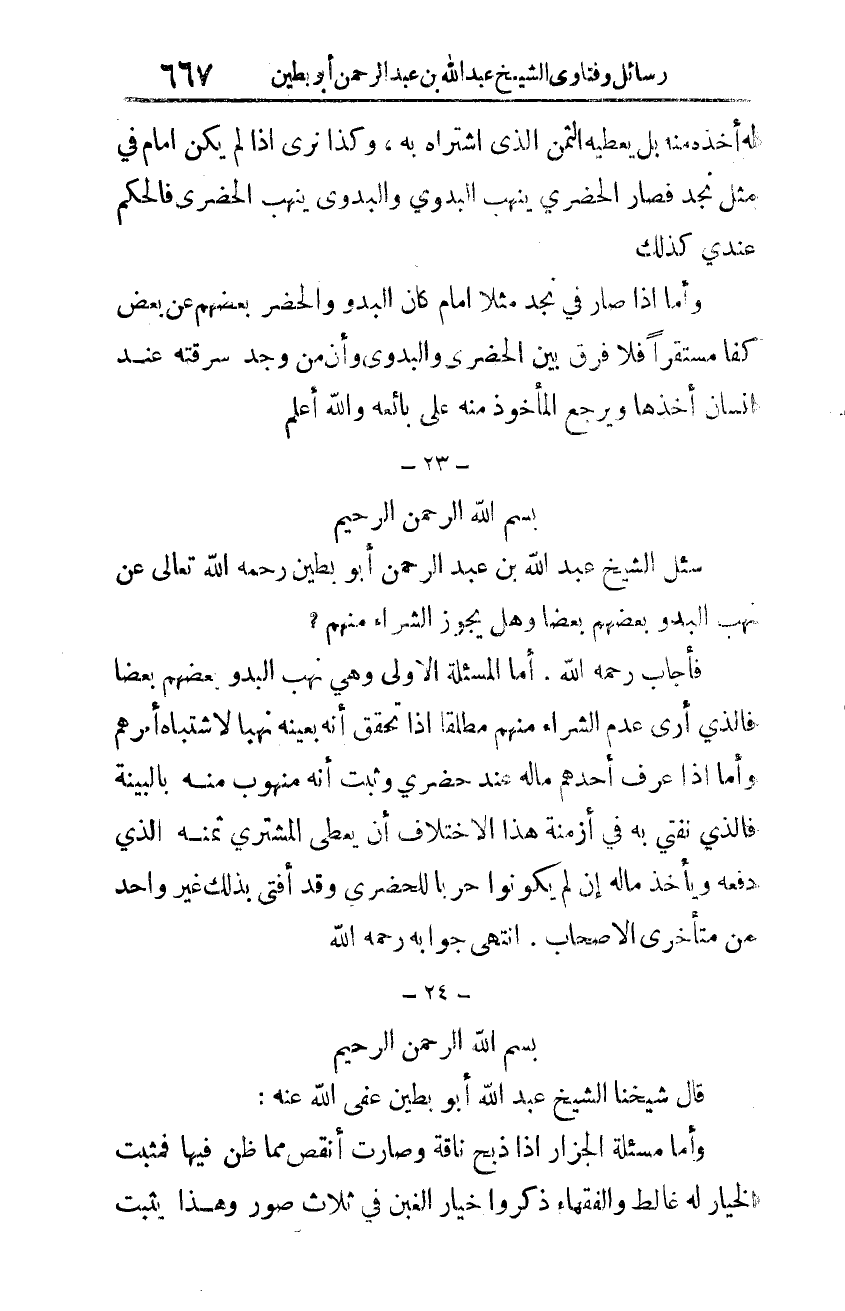 رسائل وفتاوى الشيخ عبدالله بن عبدالرحمن أبو بطين ٦٦٧
له أخذه منه بل يعطيه الثمن الذى اشتراه به ، وكذا نرى اذا لم يكن امام في
مثل نجد فصار الحضري ينهب البدوي والبدوى ينهب الحضرى فالحكم
عندي كذلك
وأما اذا صار في نجد مثلا امام كان البدو والحضر بعضهم عن بعض
كفا مستقراً فلا فرق بين الحضرى والبدوى وأن من وجد سرقته عنـد
انسان أخذها ويرجع المأخوذ منه على بائعه والله أعلم
- ٢٣ -
بسم الله الرحمن الرحيم
سئل الشيخ عبد الله بن عبد الرحمن أبو بطين رحمه الله تعالى عن
نهب البدو بعضهم بعضا وهل يجوز الشراء منهم ؟
فأجاب رحمه الله . أما المسئلة الاولى وهي نهب البدو بعضهم بعضا
فالذي أرى عدم الشراء منهم مطلقا اذا تحقق أنه بعينه نهبا لاشتباه أمرهم
وأما اذا عرف أحدهم ماله عند حضري وثبت أنه منهوب منـه بالبينة
فالذي نفتي به في أزمنة هذا الاختلاف أن يعطى المشتري ثمنـه الذي
دفعه ويأخذ ماله إن لم يكونوا حربا للحضرى وقد أفتى بذلك غير واحد
من متأخرى الاصحاب . انتهى جوابه رحمه الله
- ٢٤ -
بسم الله الرحمن الرحيم
قال شيخنا الشيخ عبد الله أبو بطين عفى الله عنه :
وأما مسئلة الجزار اذا ذبح ناقة وصارت أنقص مما ظن فيها فمثبت
الخيار له غالط والفقهاء ذكروا خيار الغبن في ثلاث صور وهـذا يثبت